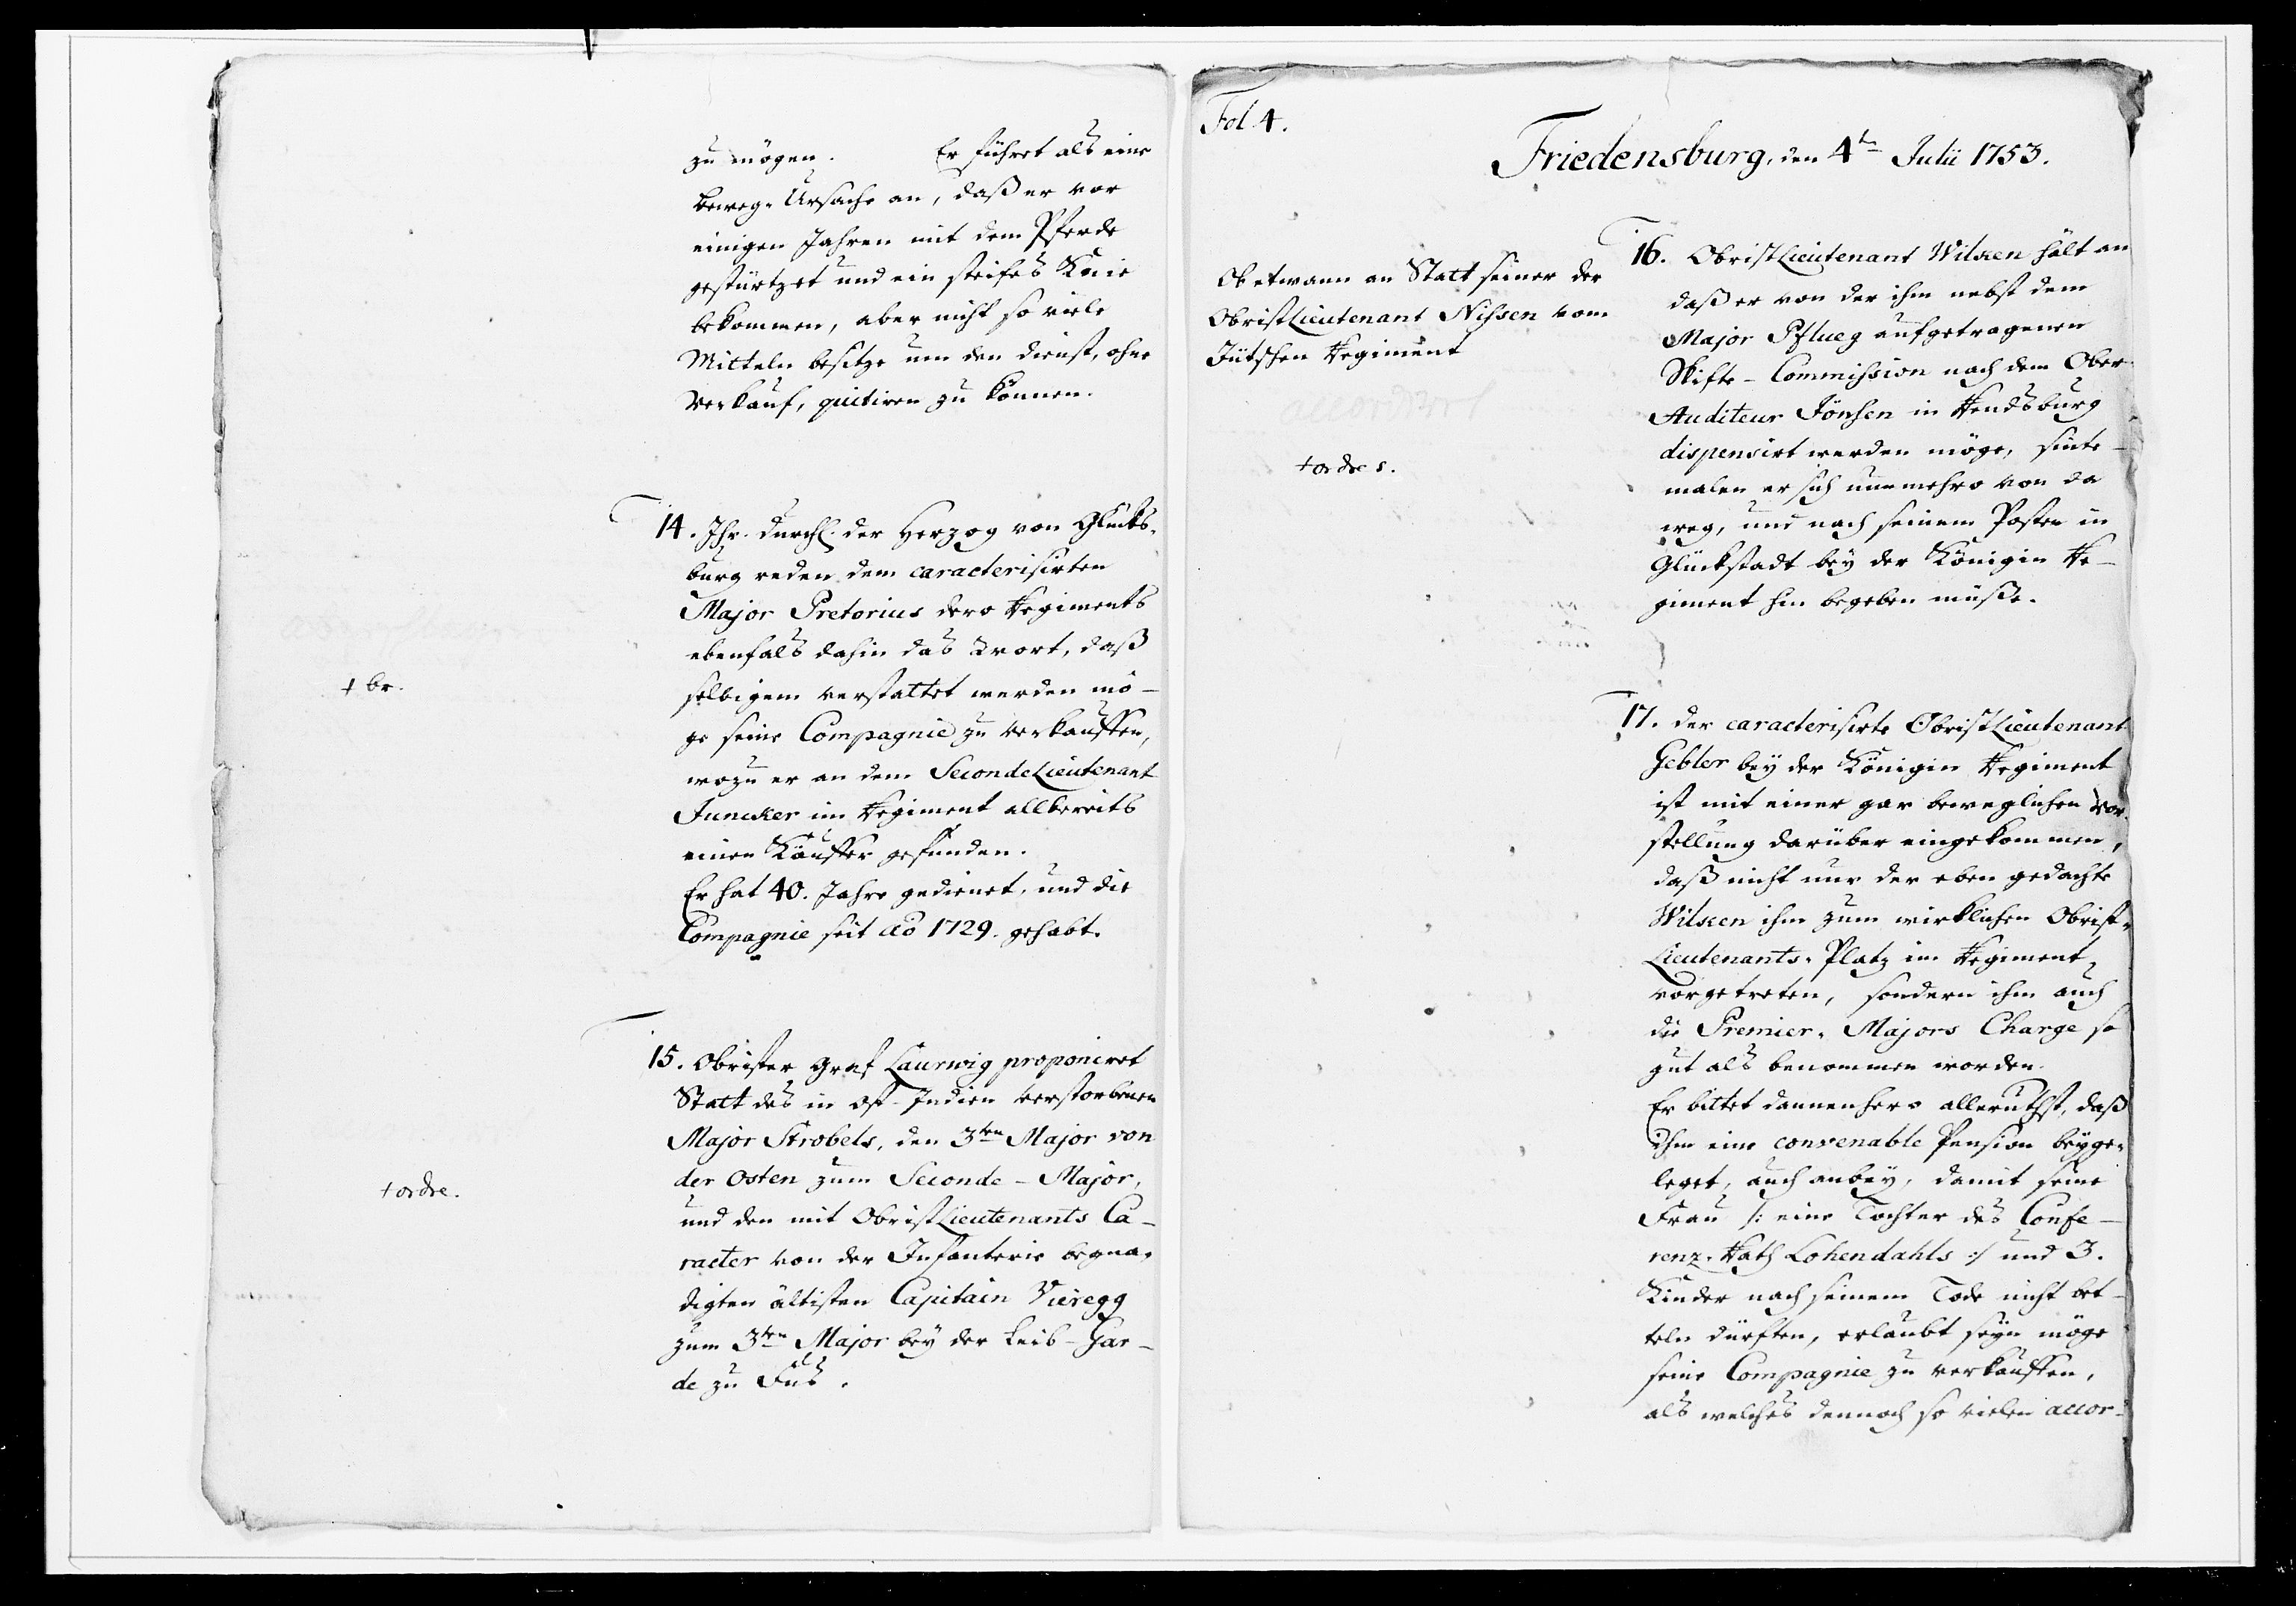 zu mögen. Er führet als eine
beweg-Ursache an, daß er vor
einigen Jahren mit dem Pferde
gestürtzet und ein steifes Knie
bekommen, aber nicht so viele
Mitteln besitze um den dienst, ohne
Verkauf, quitiren zu können.
14. Ihr. durchl. der Herzog von Glücks-
burg reden dem caracterisirten
Major Pretorius dero Regiments
ebenfals dahin das wort, daß
selbigem verstattet werden mö-
ge seine Compagnie zu verkauffen,
wozu er an dem SecondeLieutenant
Juncker im Regiment allbereits
einen Käuffer gefunden.
Er hat 40. Jahre gedienet, und die
Compagnie seit ao 1729. gehabt.
+ br.
15. Obrister Graf Laurwig proponiret
Statt des in Ost-Indien verstorbenen
Major Strobels, den 3ten Major von
der Osten zum Seconde-Major,
und den mit ObristLieutenants Ca-
racter von der Infanterie begna-
digten ältisten Capitain Vieregg
zum 3ten Major bey der Leib-Gar-
de zu Fus.
+ ordre.
Fol 4.
Friedensburg, den 4ten Julii 1753.
16. ObristLieutenant Wilken hält an
daß er von der ihm nebst dem
Major Pflueg aufgetragenen
Skifte-Commission nach dem Ober-
Auditeur Jönsen in Rendsburg
dispensirt werden möge, sinte-
malen er sich nunmehro von da
weg, und nach seinem Posten in
Glückstadt bey der Königin Re-
giment hin begeben müße.
Ob etwann an Statt seiner der
ObristLieutenant Nissen vom
Jütschen Regiment
+ ordres.
17. der caracterisirte ObristLieutenant
Gebler bey der Königin Regiment
ist mit einer gar beweglichen Vor-
stellung darüber eingekommen,
daß nicht nur der eben gedachte
Wilken ihm zum wirklichen Obrist-
Lieutenants-Platz im Regiment
vorgetreten, sondern ihm auch
die Premier-Majors Charge so
gut als benommen worden.
Er bittet dannenhero allerunthst, daß
ihm eine convenable Pension beyge-
leget, auch anbey, damit seine
Frau /: eine Tochter des Confe-
renz-Rath Lohendahls :/ und 3.
Kinder nach seinem Tode nicht bet-
teln dürften, erlaubt seyn möge
seine Compagnie zu verkauffen,
als welches dennoch so vielen accor-